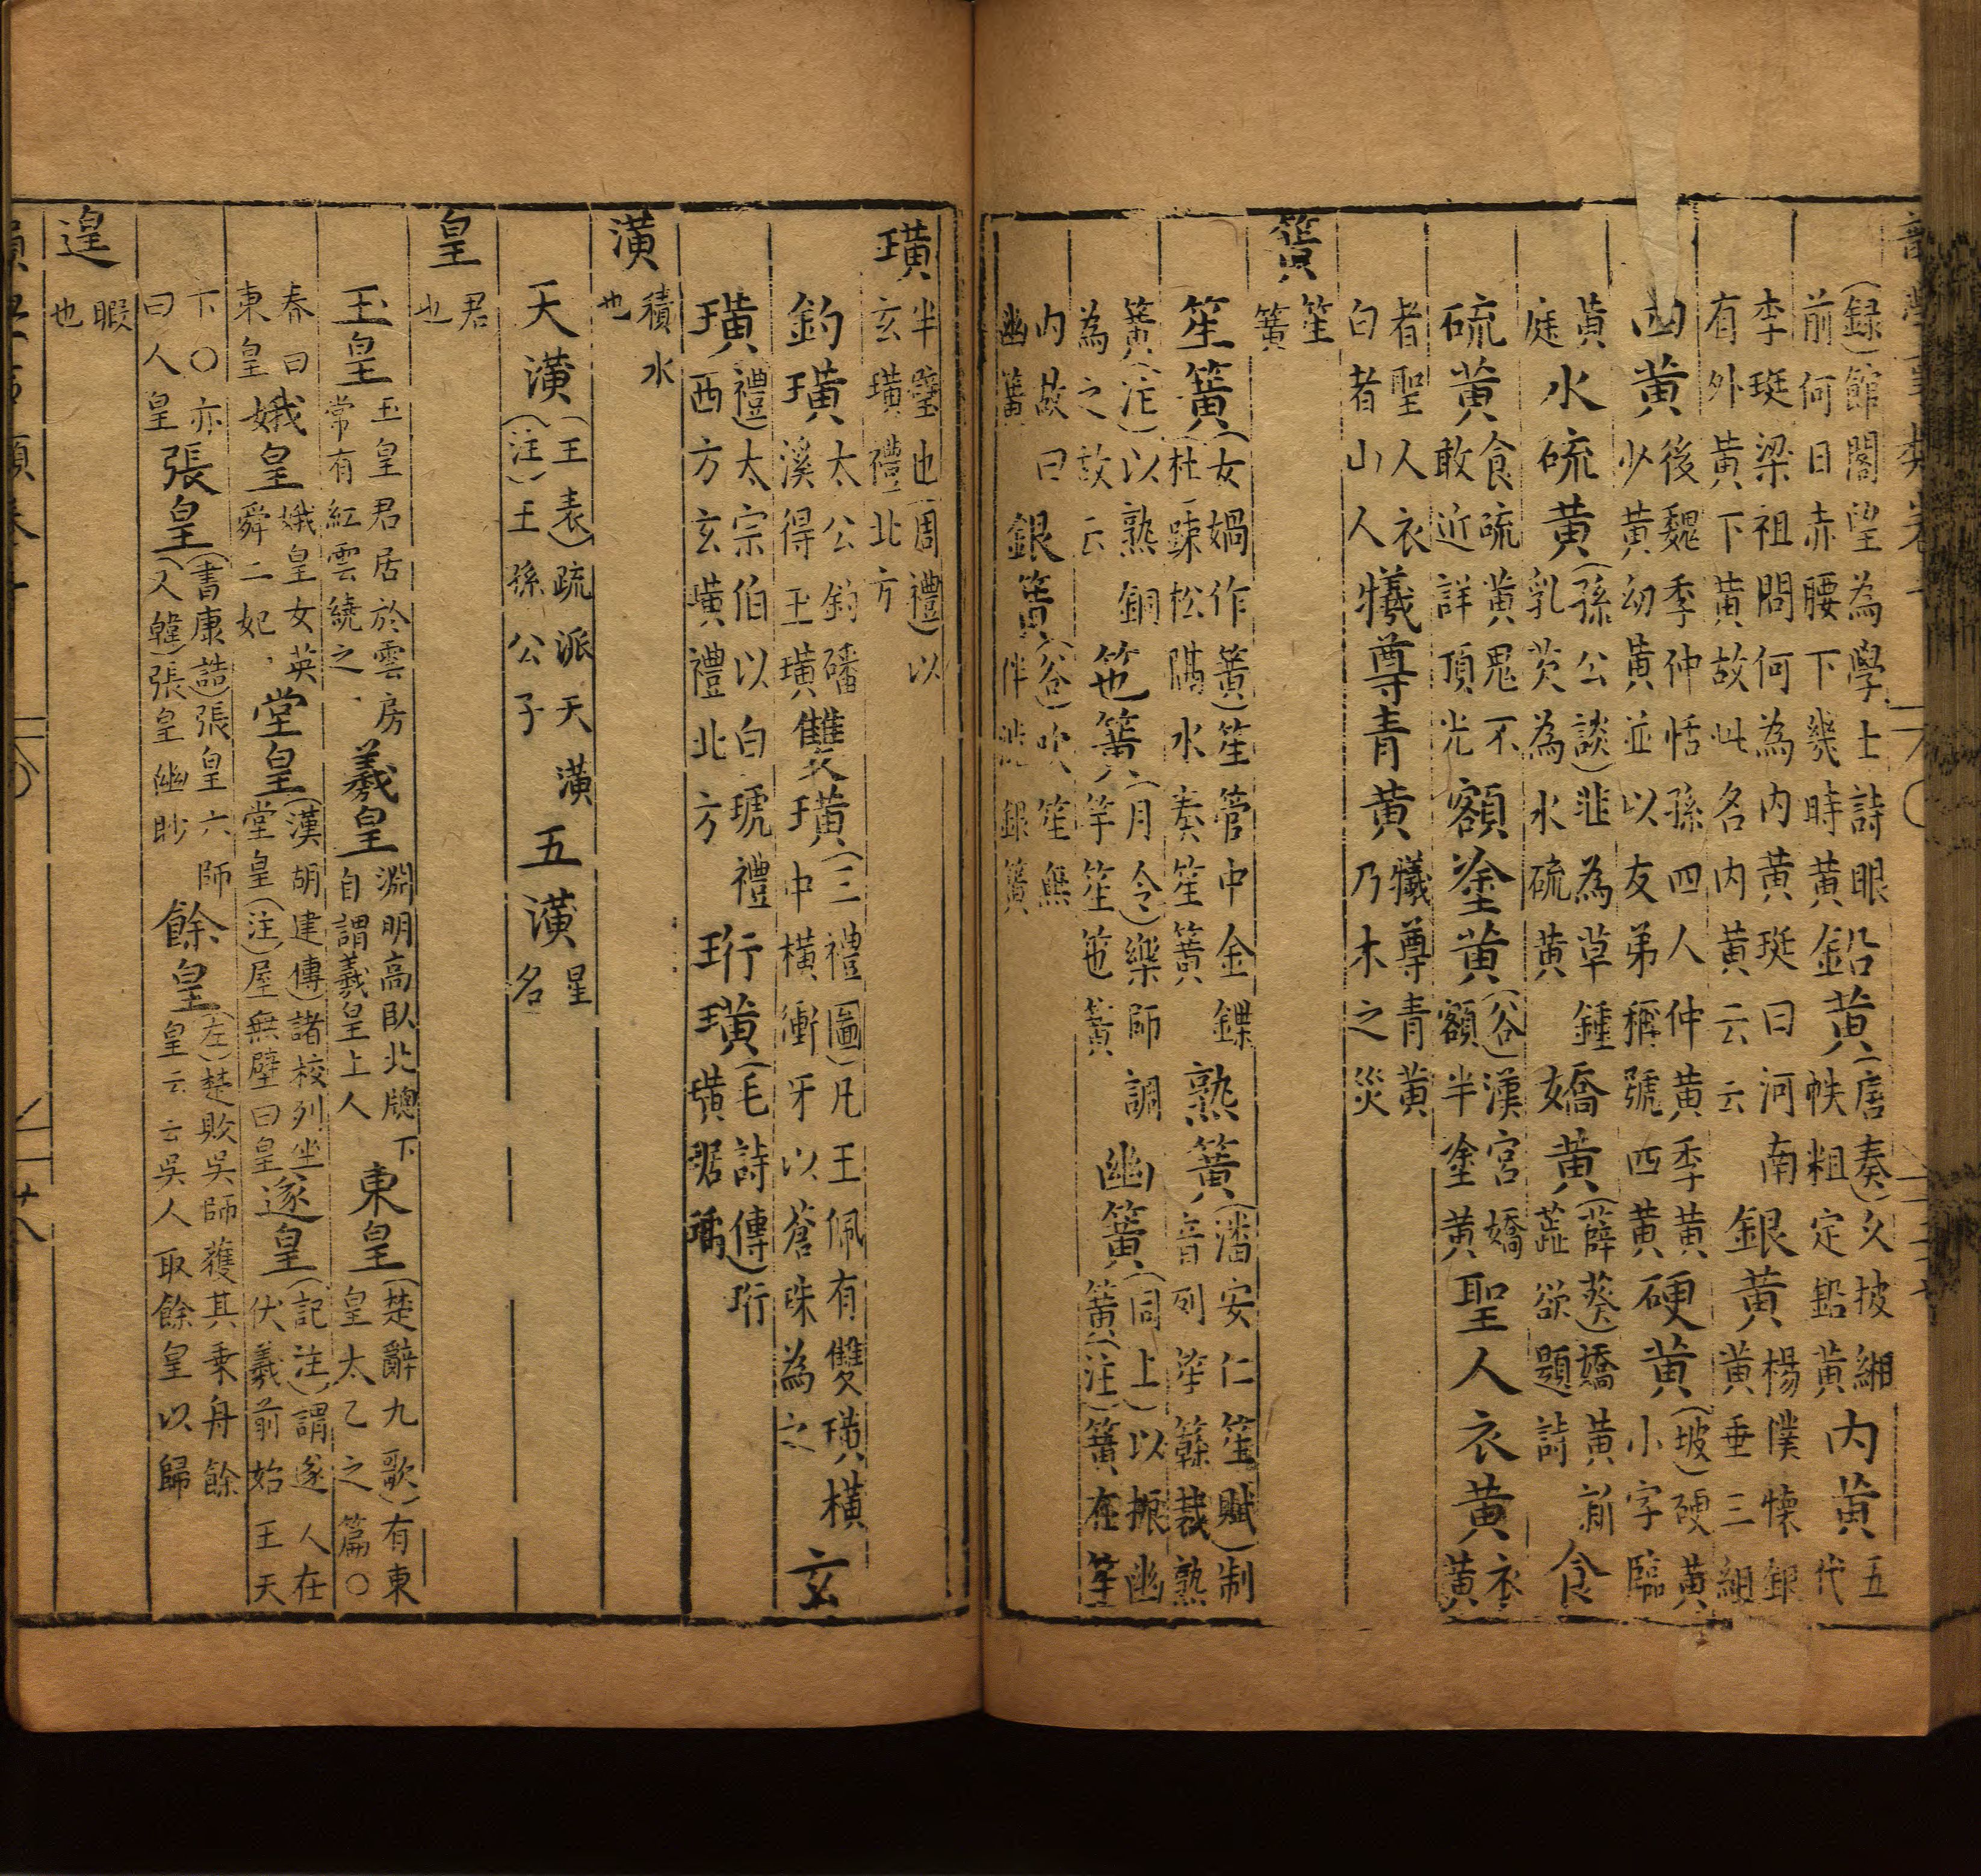 (録)館閣望為學士詩眼前何日赤腰下幾時黄鉛黄(唐奏)久披緗帙粗定鉛黄内黄五代
李珽梁祖問何為内黄珽曰河南有外黄下黄故此名内黄云云銀黄楊僕懐銀黄垂三組
四黄後魏季仲恬孫四人仲黄季黄少黄幼黄並以友弟稱號四黄硬黄(坡)硬黄小字臨
黄庭水硫黄(孫公談)韭為草鍾乳茨為水硫黄嬌黄(薛葵)嬌黄新蘂欲題詩食
硫黄食硫黄鬼不敢近詳頂光額塗黄(谷)漢宮嬌額半塗黄聖人衣黄衣黄
者聖人衣白者山人犧尊青黄犧尊青黄乃木之災
簧笙簧
笙簧(女媧作簧)笙管中金鍱(杜踈松隔水奏笙簧熟簧(潘安仁笙賦)制音列笙簳裁熟
簧(注)以熟銅為之故云笆簧(月令)樂師調竽笙箎簧幽簧(同上)以振幽簧(注)簧在笙
内故曰幽簧銀簧(谷)吹笙無伴銀簧
璜半璧也(周禮)以玄璜禮北方
釣璜太公釣磻溪得玉璜雙璜(三禮圖)凡王佩有雙璜橫中橫衝牙以蒼珠為之玄
璜(禮)太宗伯以白琥禮西方玄璜禮北方珩璜(毛詩傳)珩璜琚瑀
潢積水也
天潢(王表)疏派天潢(注)王孫公子五潢星名
皇君也
玉皇玉皇君居於雲房常有紅雲繞之羲皇淵明高臥北牕下自謂羲皇上人東皇(楚辭九歌)有東皇太乙之篇○
春曰東皇娥皇娥皇女英舜二妃堂皇(漢胡建傳)諸校列坐堂皇(注)屋無壁曰皇遂皇(記注)謂遂人在伏羲前始王天
下○亦曰人皇張皇(書康誥)張皇六師(又韓)張皇幽眇餘皇(左)楚敗吳師獲其乗舟餘皇云云吳人取餘皇以歸
遑暇也